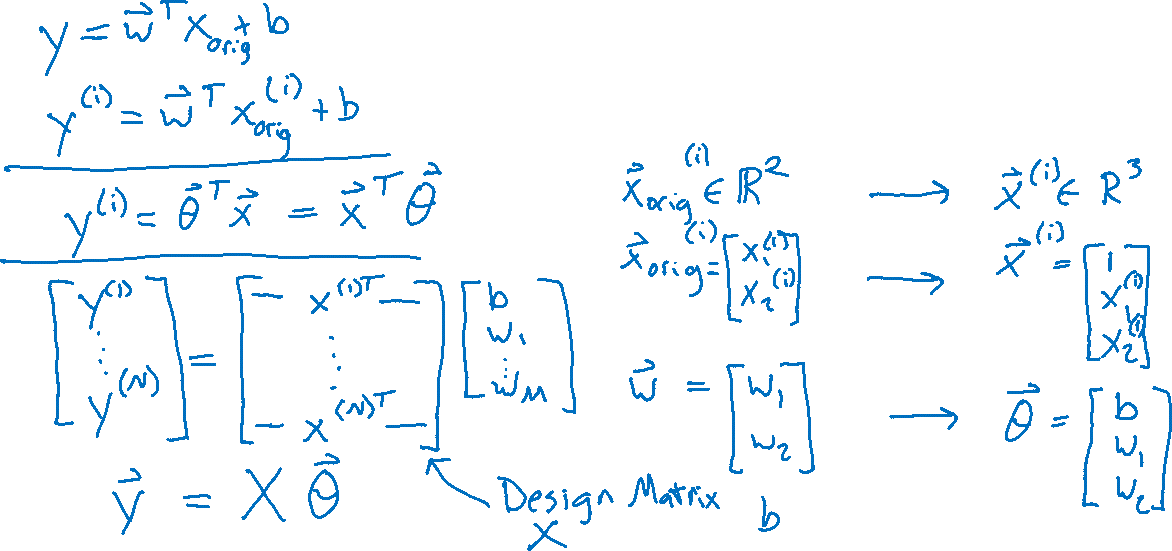 y = w⃗ᵀ x_orig + b
y⁽ⁱ⁾ = w⃗ᵀ x_orig⁽ⁱ⁾ + b
y⁽ⁱ⁾ = θ⃗ᵀ x⃗ = x⃗ᵀ θ⃗
[y⁽¹⁾ ⋮ y⁽ᴺ⁾] = [— x⁽¹⁾ᵀ — ⋮ — x⁽ᴺ⁾ᵀ —] [b w₁ ⋮ w_M]
y⃗ = X θ⃗
Design Matrix
X
x⃗_orig⁽ⁱ⁾ ∈ ℝ² → x⃗⁽ⁱ⁾ ∈ ℝ³
x⃗_orig⁽ⁱ⁾ = [x₁⁽ⁱ⁾ x₂⁽ⁱ⁾] → x⃗⁽ⁱ⁾ = [1 x₁⁽ⁱ⁾ x₂⁽ⁱ⁾]
w⃗ = [w₁ w₂] → θ⃗ = [b w₁ w₂]
b